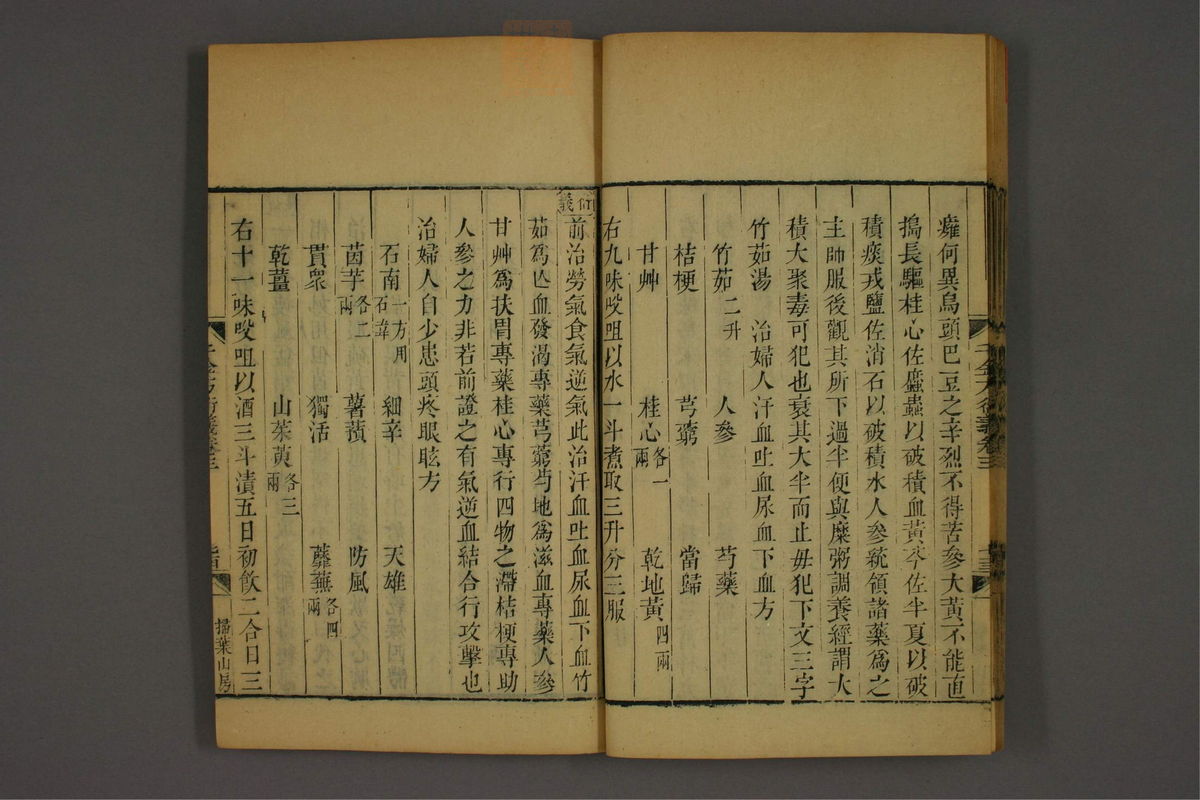 癰何異烏頭巴豆之辛烈不得苦參大黃不能直
搗長驅桂心佐䗪蟲以破積血黃芩佐半夏以破
積痰戎鹽佐消石以破積水人參統領諸藥爲之
主帥服後觀其所下過半便與糜粥調養經謂大
積大聚毒可犯也衰其大半而止毋犯下文三字
竹茹湯　治婦人汗血吐血尿血下血方
竹茹二升　人參　芍藥
桔梗　芎藭　當歸
甘艸　桂心各一兩　乾地黃四兩
右九味㕮咀以水一斗煮取三升分三服
衍義
前治勞氣食氣逆氣此治汗血吐血尿血下血竹
茹爲亾血發渴專藥芎藭芍地爲滋血專藥人參
甘艸爲扶胃專藥桂心專行四物之滯桔梗專助
人參之力非若前證之有氣逆血結合行攻擊也
治婦人自少患頭疼眼眩方
石南一方用石韋　細辛　天雄
茵芋各二兩　薯蕷　防風
貫衆　獨活　蘼蕪各四兩
乾薑　山茱萸各三兩
右十一味㕮咀以酒三斗漬五日初飲二合日三
掃葉山房